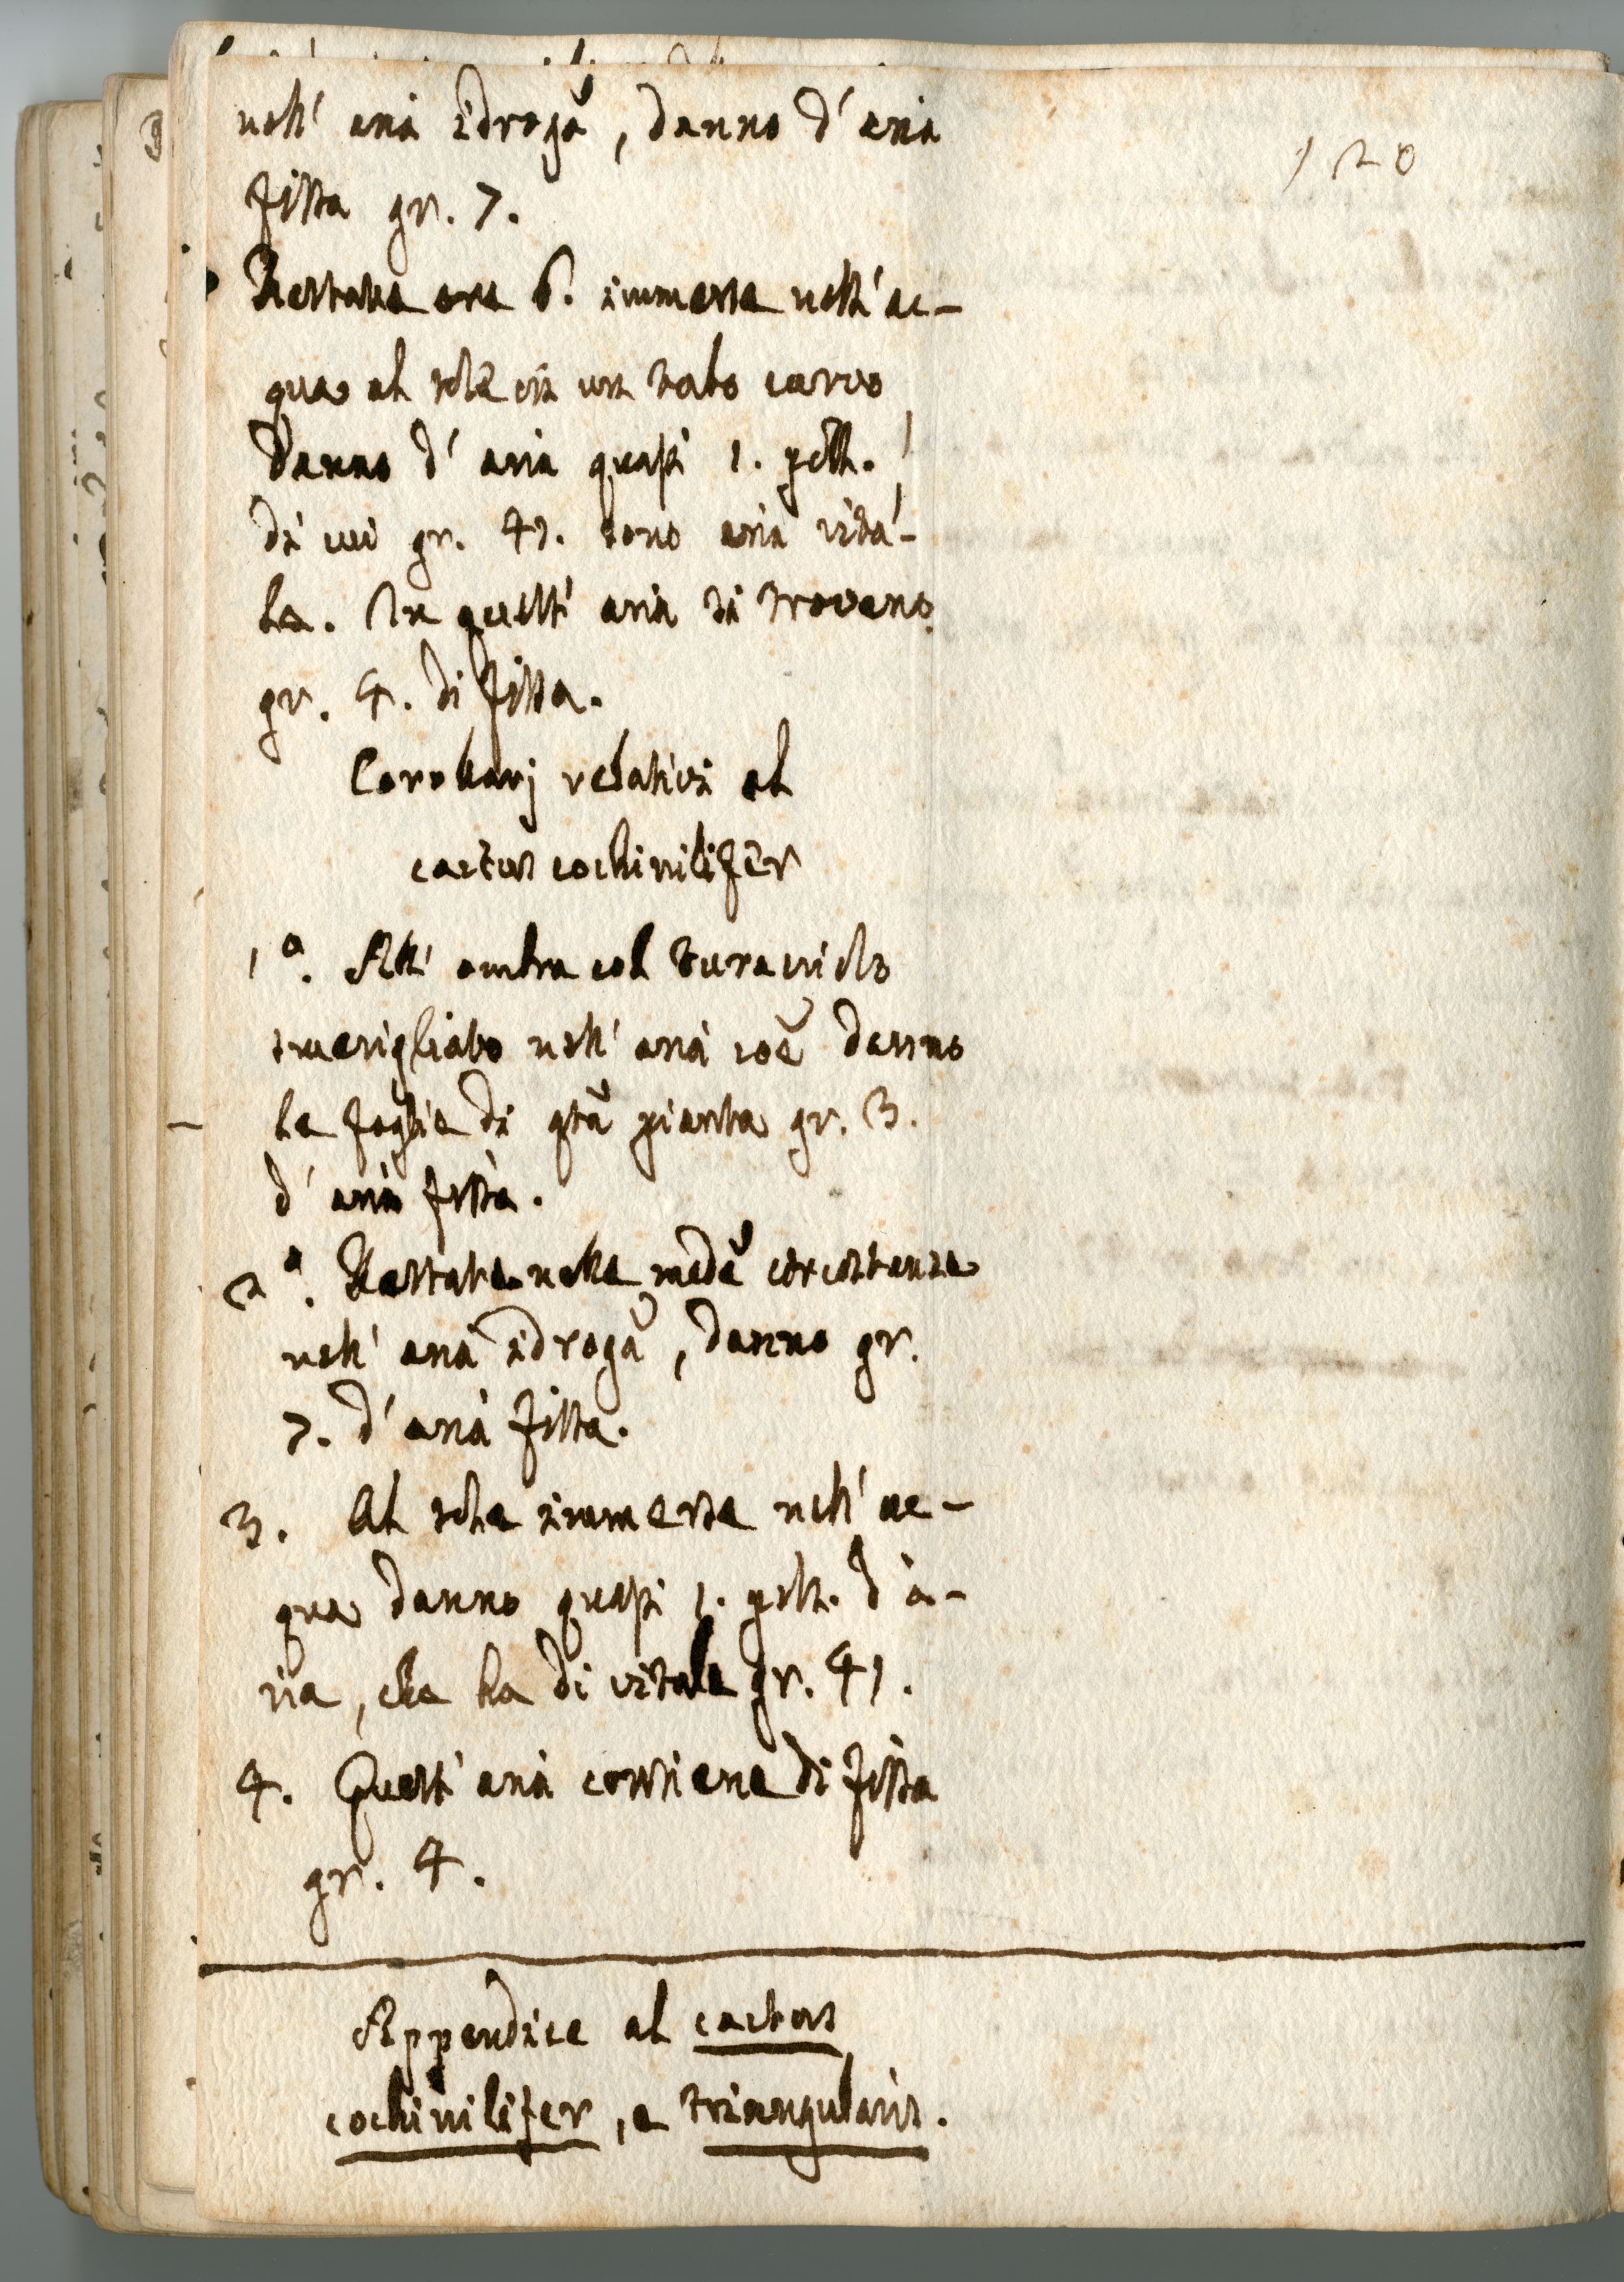 120
nell' aria idrogã, danno d' aria
fissa gr. 7.
Restate ore 6. immerse nell' ac-
qua al sole in un tubo curvo
danno d' aria quasi 1. poll.
di cui gr. 41. sono aria vita-
le. In quest' aria si trovano
gr. 4. di fissa.
Corollarj relativi al
cactus cochinilifer
1ª. All' ombra col turacciolo
smerigliato nell' aria coẽ danno
le foglie di qtã pianta gr. 3.
d' aria fissa.
2ª. Restate nelle medẽ circostanze
nell' aria idrogã, danno gr.
7. d' aria fissa.
3. Al sole immerse nell' ac-
qua danno quasi 1. poll. d' a-
ria, che ha di vitale gr. 41.
4. Quest' aria contiene di fissa
gr. 4.
Appendice al cactus
cochinilifer, e triangularis.